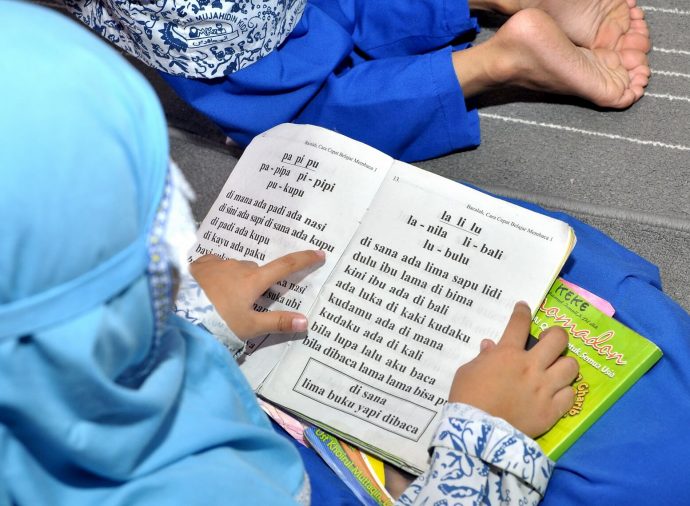 MUJAHIDIN
Bacalah, Cara Cepat Belajar Membaca 1
pa pi pu
pa - pipa pi - pipi
pu - kupu
di mana ada padi ada nasi
di sini ada sapi di sana ada kupu
di padi ada kupu
di kayu ada paku
nasi
suka ubi
13.
Bacalah, Cara Cepat Belajar Membaca 1
la li lu
la - nila li - bali
lu - bulu
di sana ada lima sapu lidi
dulu ibu lama di bima
kini ibu ada di bali
ada luka di kaki kudaku
kudamu ada di mana
kudaku ada di kali
bila lupa lalu aku baca
bila dibaca lama lama bisa
di sana
lima buku yapi dibaca
KEKE
Semua Usia
Gharib
Ust Khoirul Muttaqin